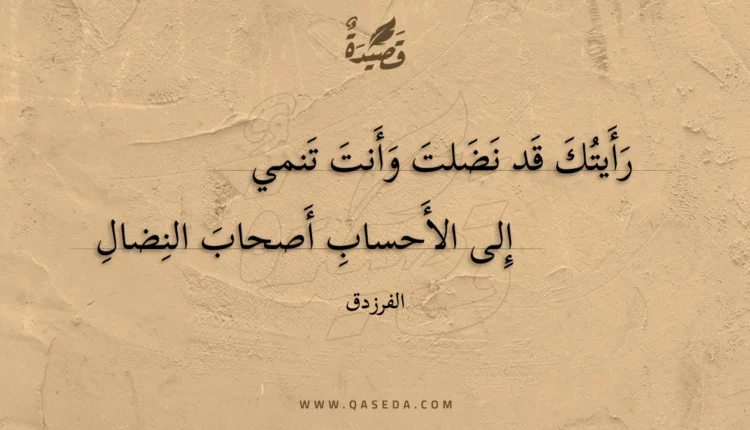 قَصِيدَةٌ
رَأَيتُكَ قَد نَضَلتَ وَأَنتَ تَنمي
إِلى الأَحسابِ أَصحابَ النِضالِ
الفرزدق
WWW.QASEDA.COM